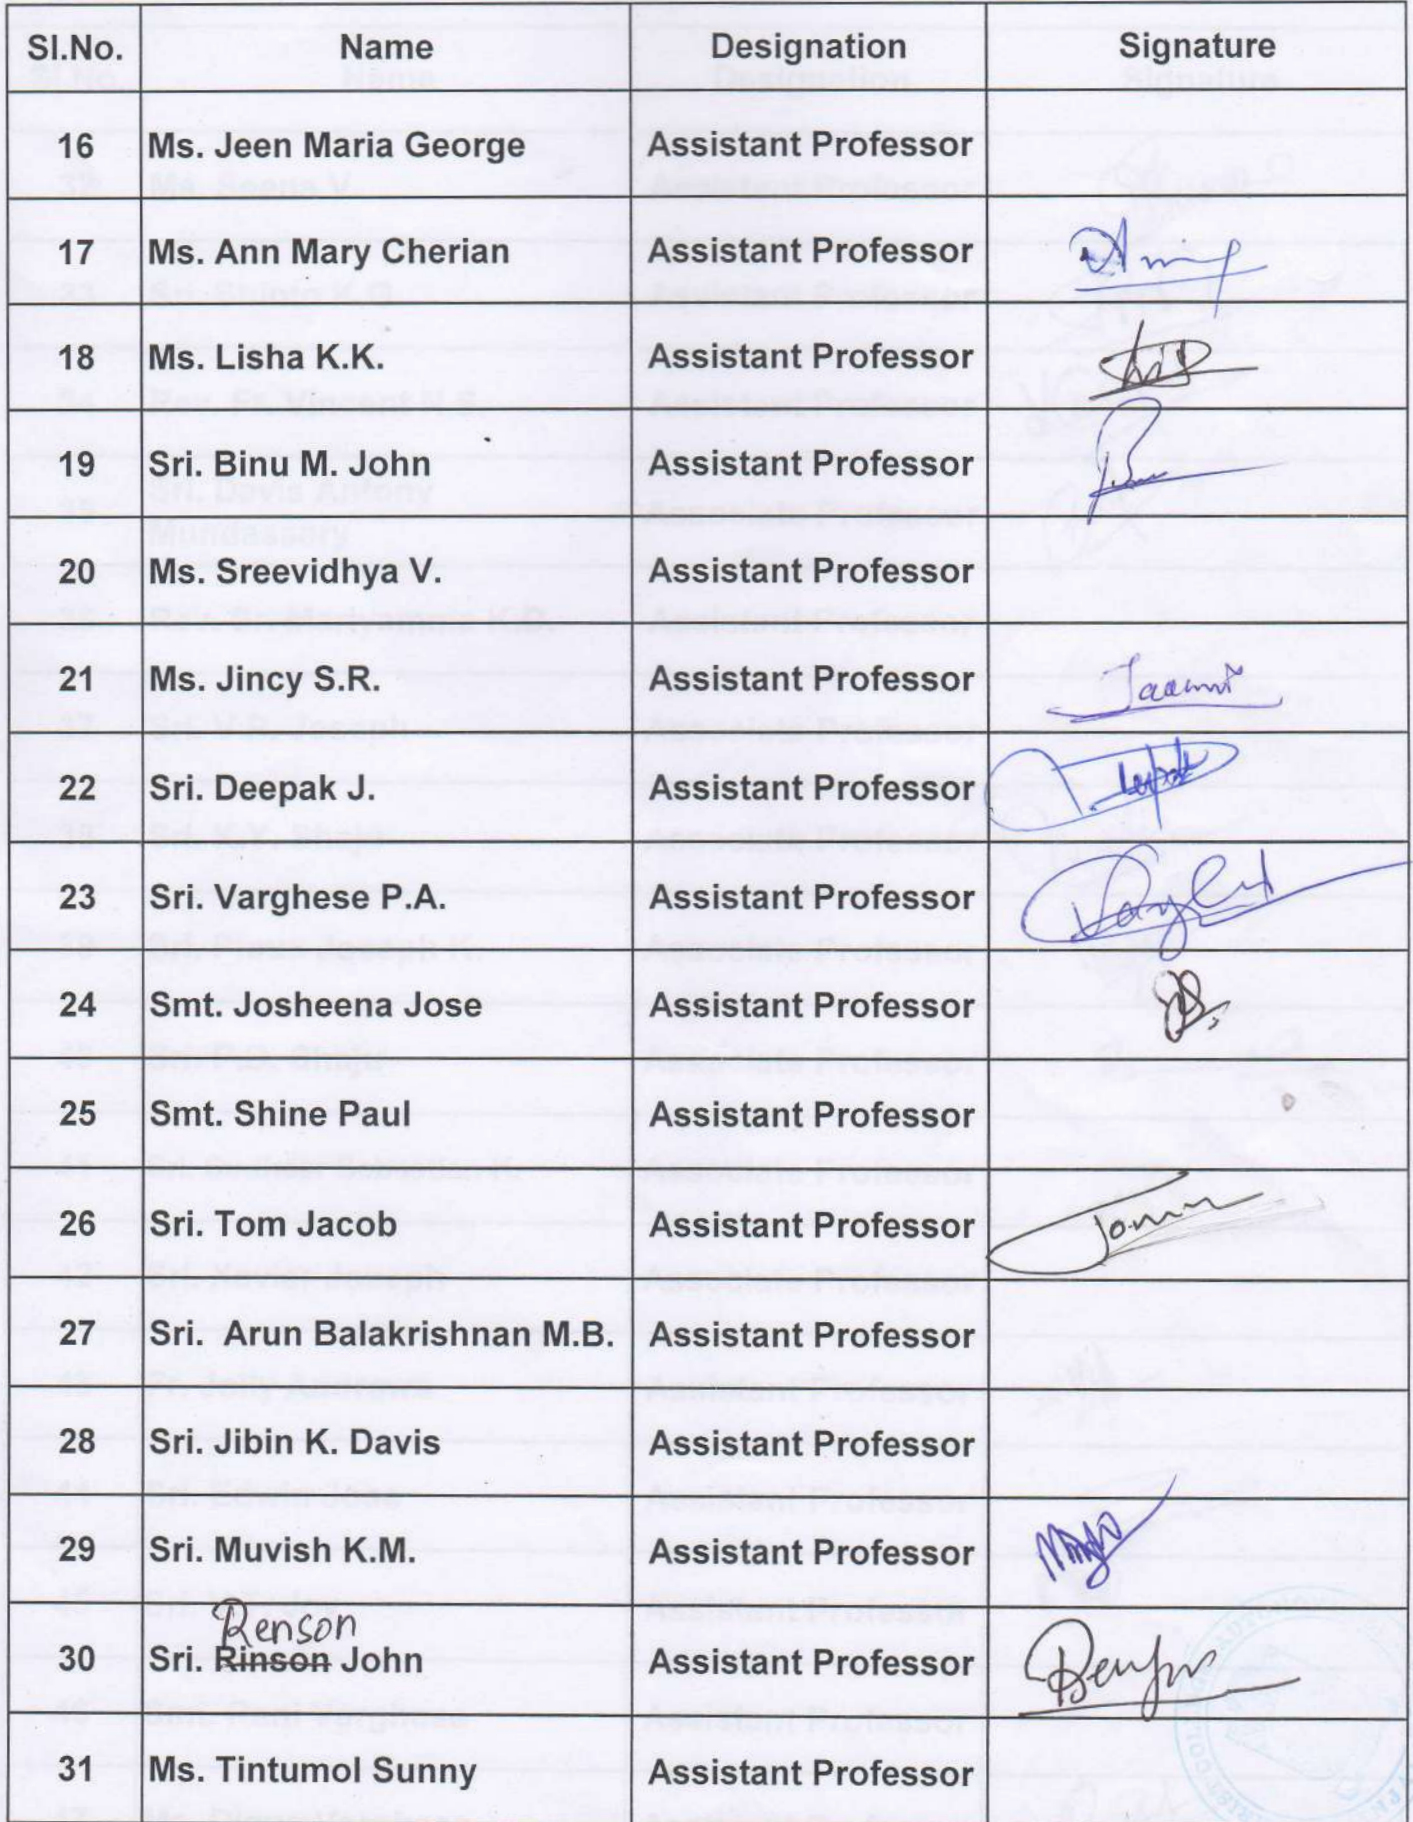 Sl.No. Name Designation Signature
16 Ms. Jeen Maria George Assistant Professor
17 Ms. Ann Mary Cherian Assistant Professor
18 Ms. Lisha K.K. Assistant Professor
19 Sri. Binu M. John Assistant Professor
20 Ms. Sreevidhya V. Assistant Professor
21 Ms. Jincy S.R. Assistant Professor
22 Sri. Deepak J. Assistant Professor
23 Sri. Varghese P.A. Assistant Professor
24 Smt. Josheena Jose Assistant Professor
25 Smt. Shine Paul Assistant Professor
26 Sri. Tom Jacob Assistant Professor
27 Sri. Arun Balakrishnan M.B. Assistant Professor
28 Sri. Jibin K. Davis Assistant Professor
29 Sri. Muvish K.M. Assistant Professor
Renson
30 Sri. Rinson John Assistant Professor
31 Ms. Tintumol Sunny Assistant Professor